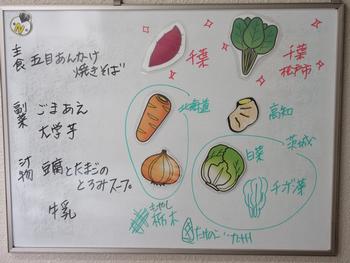 主食 五目あんかけ
焼きそば
副菜 ごまあえ
大学芋
汁物 豆腐とたまごの
とろみスープ
牛乳
千葉
千葉
松戸市
北海道
高知
白菜
茨城
チンゲン菜
もやし
栃木
たけのこ 九州